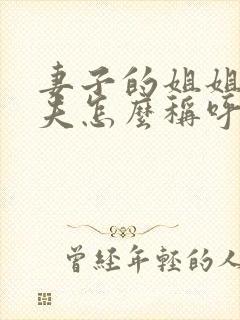 妻子的姐姐
夫怎麼稱呼
曾經年輕的人